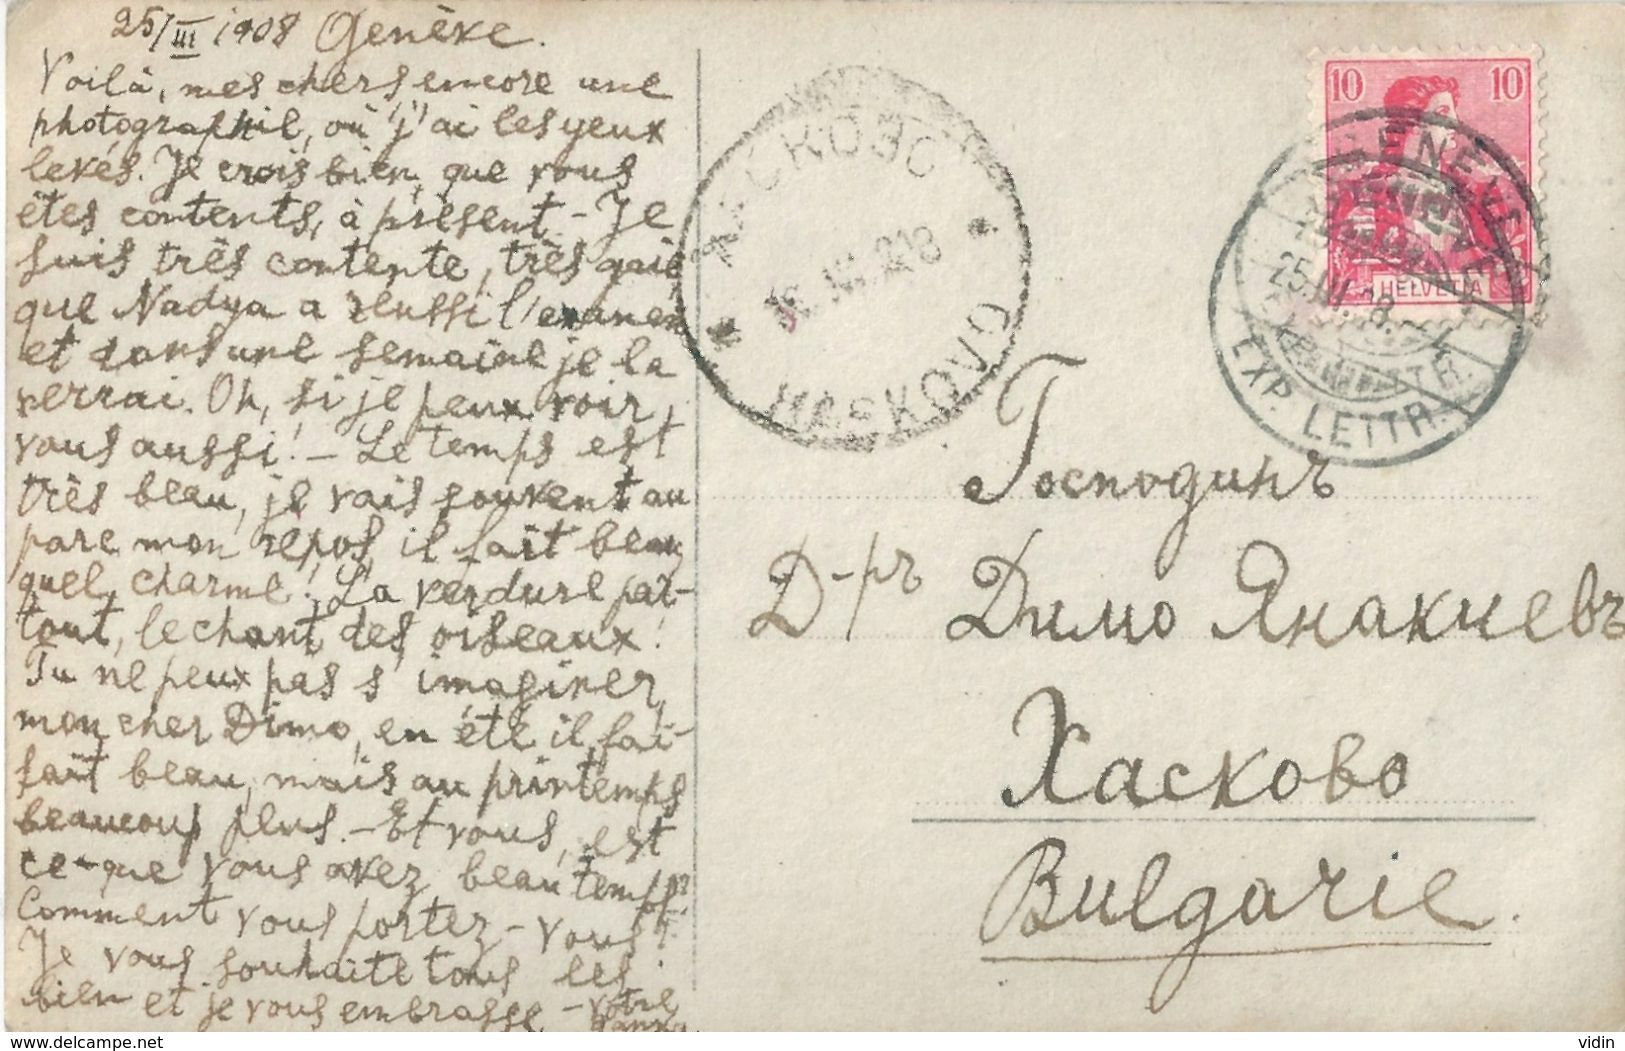 25/III 1908 Genève.
Voilà, mes chers encore une
photographie, où j'ai les yeux
levés. Je crois bien, que vous
êtes contents, à présent. - Je
suis très contente, très gaie,
que Nadya a reussi l'examen
et dans une semaine je la
verrai. Oh, si je peux voir,
vous aussi! - Le temps est
très beau, je vais souvent au
parc mon repos, il fait beau,
quel charme! La verdure par-
tout, le chant des oiseaux!
Tu ne peux pas s'imaginer,
mon cher Dimo, en été il fai-
fait beau, mais au printemps
beaucoup plus. - Et vous, est
ce-que vous avez beau temps?
Comment vous portez-vous?
Je vous souhaite tous les
bien et je vous embrasse - Votre
ХАСКОВО
HASKOVO
10 10
HELVETIA
GENÈVE
25.III.08.
EXP. LETTR.
Господинъ
Д-ръ Димо Янакиевъ
Хасково
Bulgarie.
www.delcampe.net
vidin